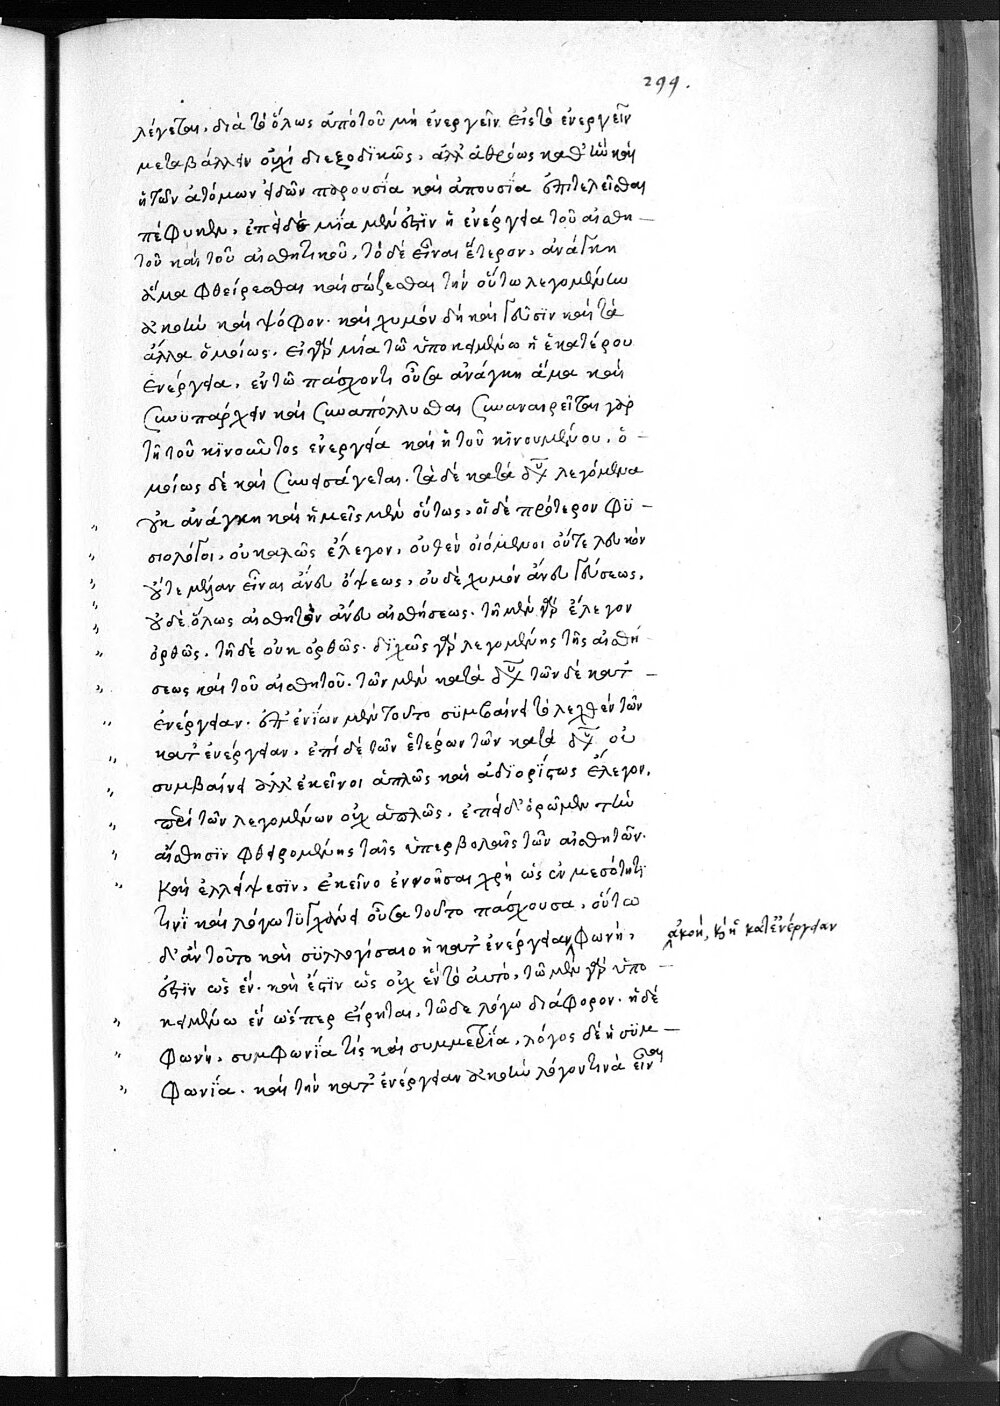 294.
λέγεται, διὰ τὸ ὅλως ἀπὸ τοῦ μὴ ἐνεργεῖν εἰς τὸ ἐνεργεῖν
μεταβάλλειν οὐχὶ διεξοδϊκῶς, ἀλλ' ἀθρόως καθ' ἣν καὶ
ἡ τῶν ἀτόμων εἰδῶν παρουσία καὶ ἀπουσΐα ἐπιτελεῖσθαι
πέφυκεν, ἐπεὶ δὲ μΐα μέν ἐστϊν ἡ ἐνέργεια τοῦ αἰσθη
τοῦ καὶ τοῦ αἰσθητικοῦ, τὸ δὲ εἶναι ἕτερον, ἀνάγκη
ἅμα φθείρεσθαι καὶ σώζεσθαι τὴν οὕτω λεγομένην
ἀκοὴν καὶ ψόφον. καὶ χυμὸν δὴ καὶ γεῦσϊν καὶ τὰ
ἄλλα ὁμοίως. εἰ γὰρ μία τῶ ὑποκειμένω ἡ ἑκατέρου
ἐνέργεια, ἐν τῶ πάσχοντι οὖσα ἀνάγκη ἅμα καὶ
συνυπάρχειν καὶ συναπόλλυσθαι συναναιρεῖται γὰρ
τῆ τοῦ κϊνοῦντος ἐνεργεία καὶ ἡ τοῦ κϊνουμένου, ὁ
μοίως δὲ καὶ συνεισάγεται. τὰ δὲ κατὰ δύ λεγόμενα
οὐκ ἀνάγκη καὶ ἡμεῖς μὲν οὕτως, οἱ δὲ πρότερον φϋ
σιολόγοι, οὐ καλῶς ἔλεγον, οὐθὲν οἰόμενοι οὔτε λευκὸν
οὔτε μέλαν εἶναι ἄνευ ὄψεως, οὐδὲ χυμὸν ἄνευ γεύσεως,
οὐδὲ ὅλως αἰσθητὸν ἄνευ αἰσθήσεως. τῆ μὲν γὰρ ἔλεγον
ὀρθῶς, τῆ δὲ οὐκ ὀρθῶς. διχῶς γὰρ λεγομένης τῆς αἰσθή
σεως καὶ τοῦ αἰσθητοῦ. τῶν μὲν κατὰ δύ τῶν δὲ κατ'
ἐνέργειαν. ἐπ' ἐνίων μὲν τοῦτο σϋμβαίνει τὸ λεχθὲν τῶν
κατ' ἐνέργειαν, ἐπὶ δὲ τῶν ἑτέρων τῶν κατὰ δύ οὐ
συμβαίνει ἀλλ' ἐκεῖνοι ἁπλῶς καὶ ἀδϊορΐστως ἔλεγον,
περὶ τῶν λεγομένων οὐχ ἁπλῶς, ἐπεὶ δ' ὁρῶμεν τὴν
αἴσθησϊν φθειρομένης ταῖς ὑπερβολαῖς τῶν αἰσθητῶν.
καὶ ἐλλείψεσϊν, ἐκεῖνο ἐννοῆσαι χρὴ ὡς ἐν μεσότητϊ
τϊνϊ καὶ λόγω τϋγχάνει οὖσα τοῦτο πάσχουσα, οὕτω
δ' ἂν τοῦτο καὶ σϋλλογίσαιο ἡ κατ' ἐνέργειαν φωνὴ,
ἀκοή, κ ἡ κατ' ἐνέργειαν
ἐστϊν ὡς ἕν. καὶ ἔστϊν ὡς οὐχ ἓν τὸ αὐτὸ, τῶ μὲν γὰρ ὑπο
κειμένω ἓν ὥσπερ εἴρηται, τῶ δε λόγω διάφορον. ἡ δὲ
φωνὴ, συμφωνΐα τὶς καὶ συμμετρΐα, λόγος δὲ ἡ σϋμ
φωνΐα. καὶ τὴν κατ' ἐνέργειαν ἀκοὴν λόγον τινὰ εἶναι